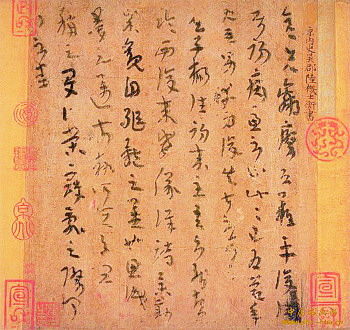 原内史吳郡陸機士衡書
彦先羸瘵恐難平復往屬
初病慮不止此此已為慶承
使唯男幸為復失前憂耳吳
子楊往初來主吾不能盡
臨西復來威儀詳跱舉動成
觀自軀體之美也思識
量之邁前執所恒有宜
稱之夏伯榮寇亂之際聞
問不悉